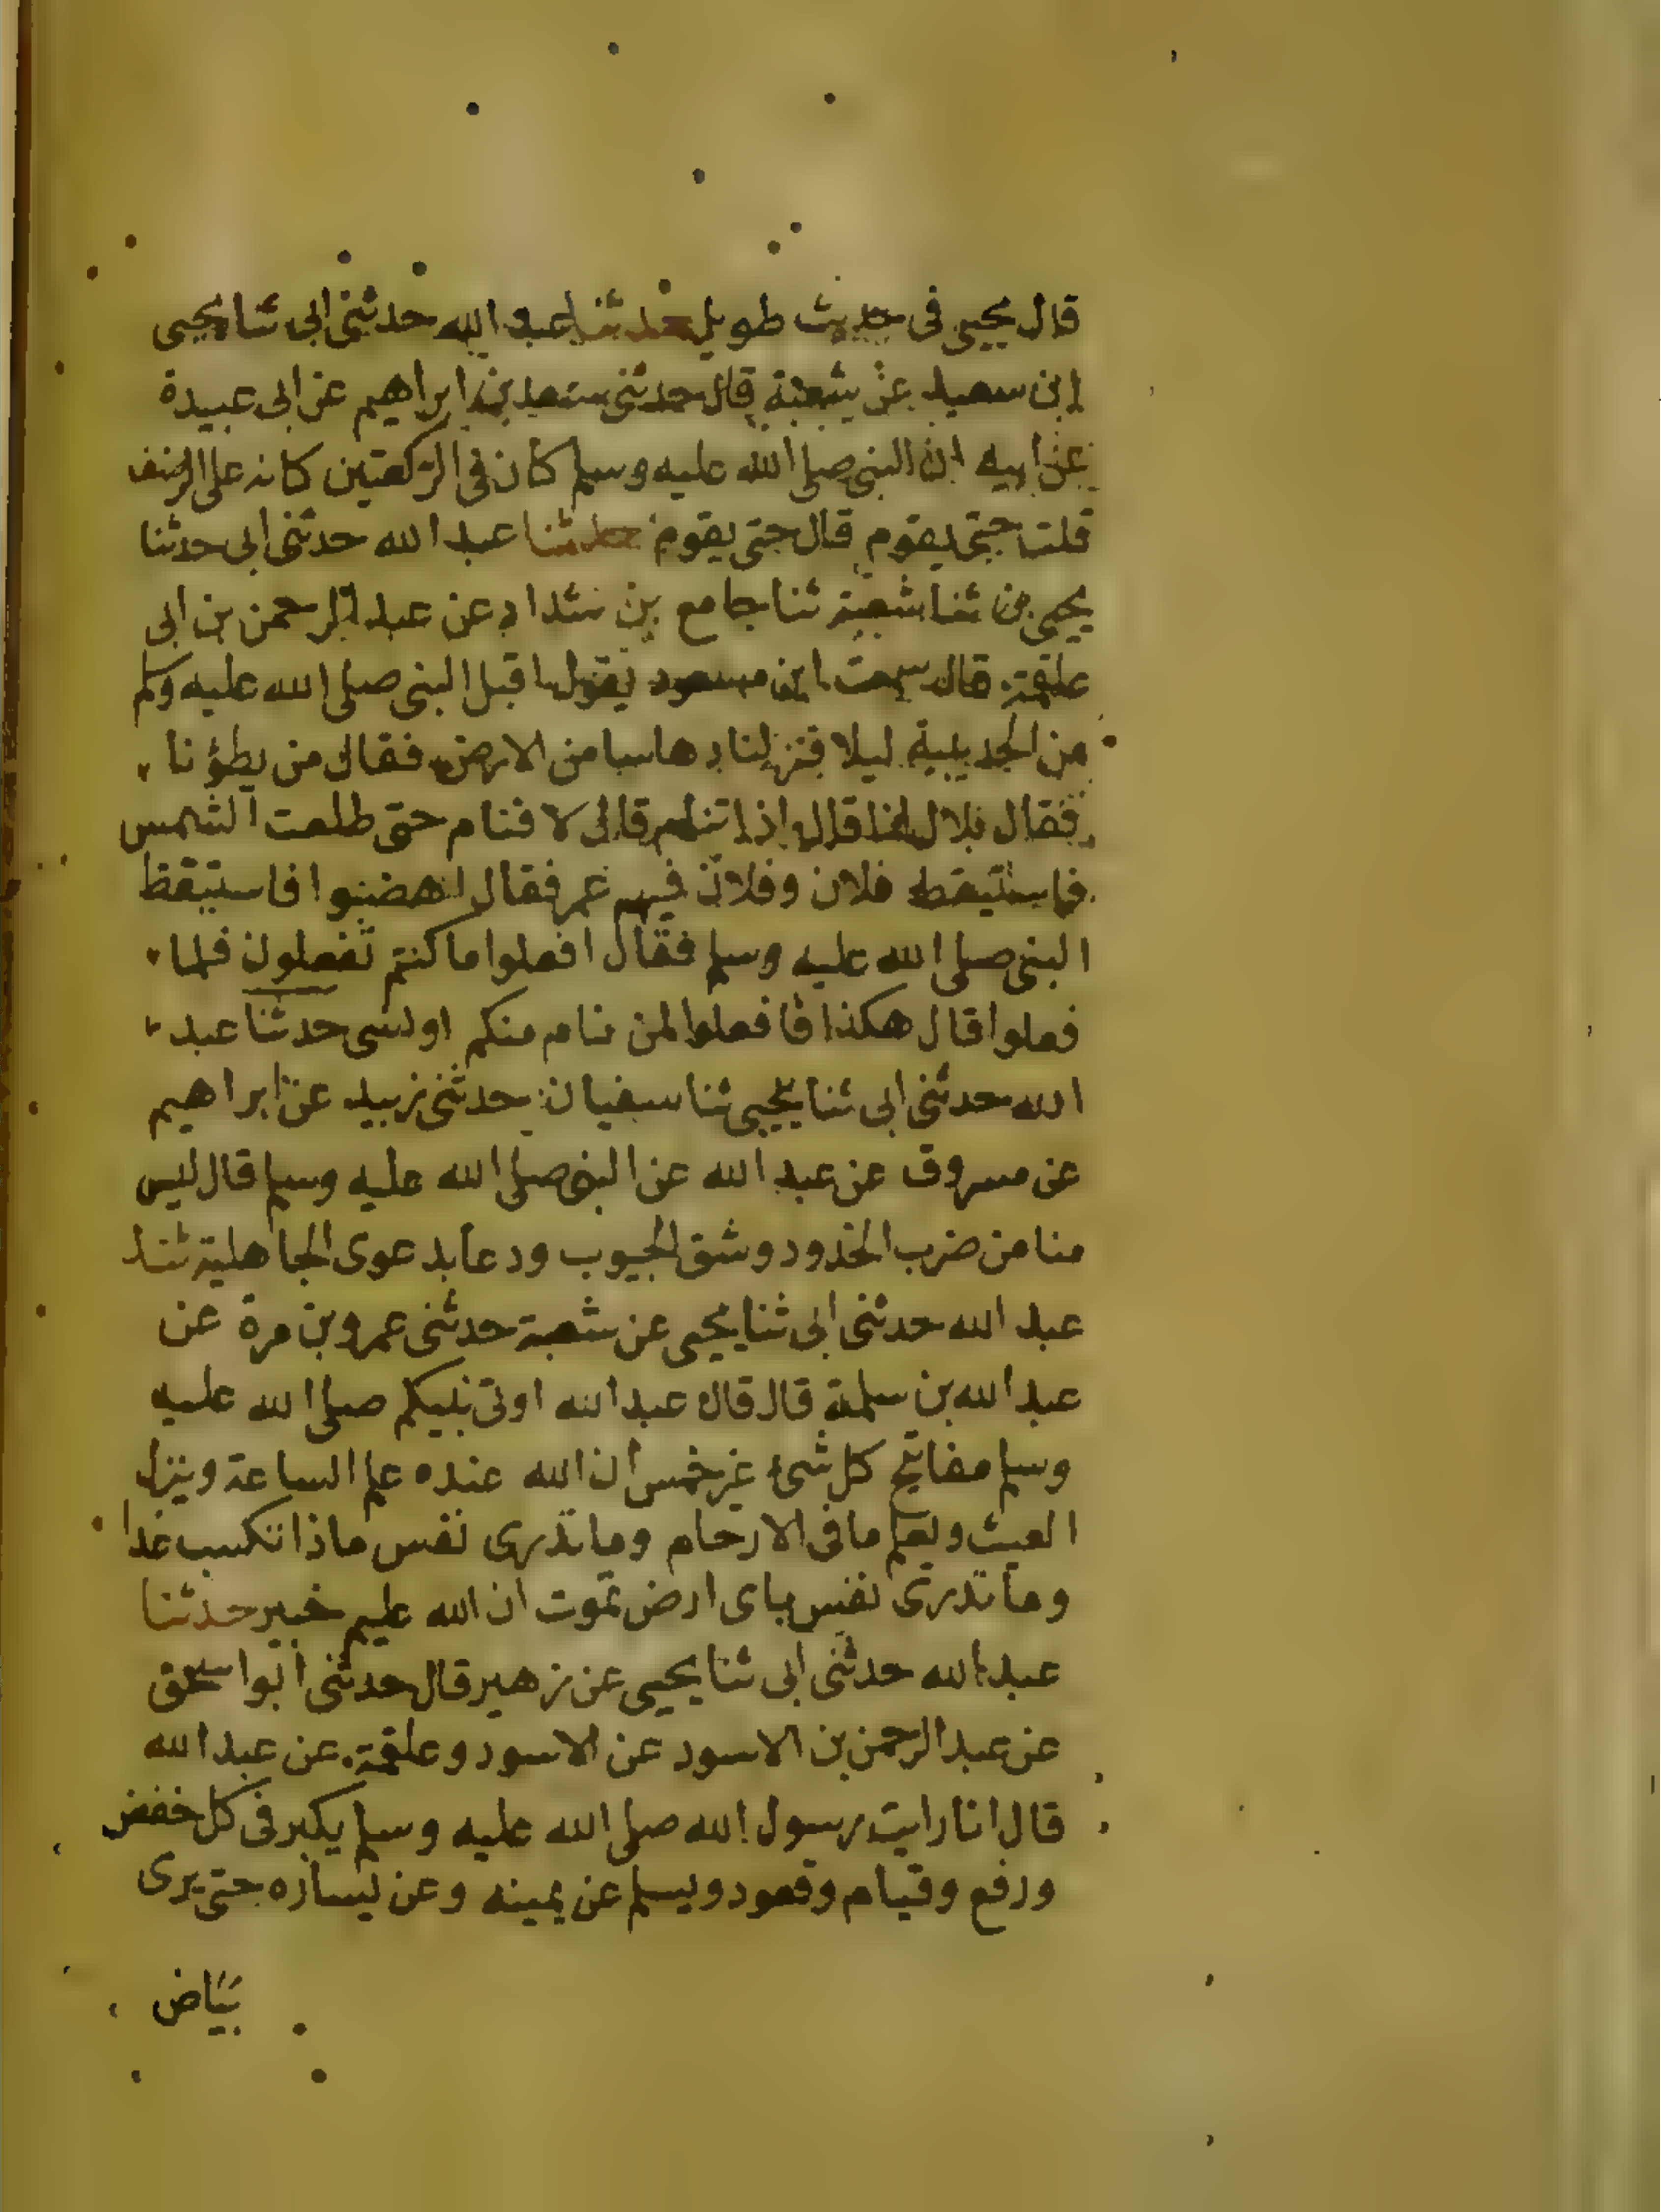 قال يحيى فى حديث طويل حدثنا عبد الله حدثنى ابى ثنا يحيى
ابن سعيد عن شعبة قال حدثنى سعد بن ابراهيم عن ابى عبيدة
عن ابيه ان النبى صلى الله عليه وسلم كان فى الركعتين كانه على الرضف
قلت حتى يقوم قال حتى يقوم حدثنا عبد الله حدثنى ابى حدثنا
يحيى بن ثنا شعبة ثنا جامع بن شداد عن عبد الرحمن بن ابى
علقمة قال سمعت ابن مسعود يقول اقبل النبى صلى الله عليه وسلم
من الحديبية ليلا فنزلنا دهاسا من الارض فقال من يطؤنا
فقال بلال انا قال اذا تنام قال لا فنام حتى طلعت الشمس
فاستيقظ فلان وفلان فيهم عمر فقال اهضبوا فاستيقظ
النبى صلى الله عليه وسلم فقال افعلوا ما كنتم تفعلون فلما
فعلوا قال هكذا فافعلوا لمن نام منكم اونسى حدثنا عبد
الله حدثنى ابى ثنا يحيى ثنا سفيان حدثنى زبيد عن ابراهيم
عن مسروق عن عبد الله عن النبى صلى الله عليه وسلم قال ليس
منا من ضرب الخدود وشق الجيوب ودعا بدعوى الجاهلية ثنا
عبد الله حدثنى ابى ثنا يحيى عن شعبة حدثنى عمرو بن مرة عن
عبد الله بن سلمة قال قال عبد الله اوتى نبيكم صلى الله عليه
وسلم مفاتيح كل شىء غير خمس ان الله عنده علم الساعة وينزل
الغيث ويعلم ما فى الارحام وما تدرى نفس ماذا تكسب غدا
وما تدرى نفس باى ارض تموت ان الله عليم خبير حدثنا
عبد الله حدثنى ابى ثنا يحيى عن زهير قال حدثنى ابو اسحق
عن عبد الرحمن بن الاسود عن الاسود وعلقمة عن عبد الله
قال انا رايت رسول الله صلى الله عليه وسلم يكبر فى كل خفض
ورفع وقيام وقعود ويسلم عن يمينه وعن يساره حتى يرى
بياض